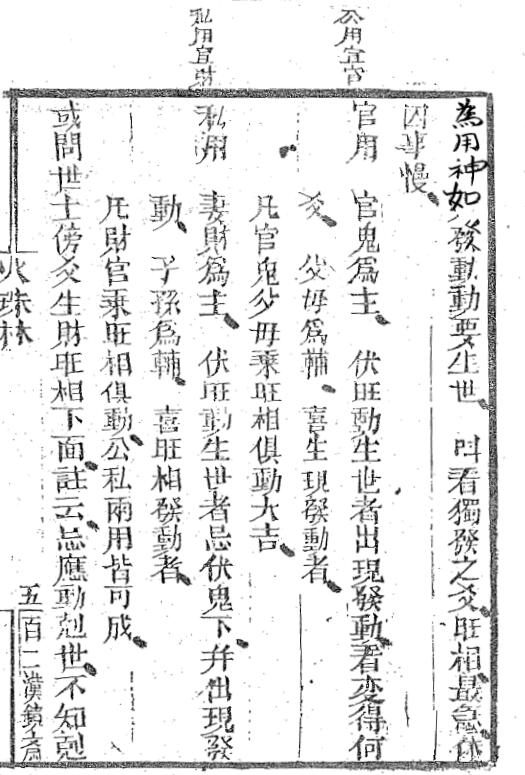 公用宜官
私用宜財
為用神如發動動要生世 且看獨發之爻旺相最急休
因事慢
官用 官鬼為主 伏旺動生世者出現發動者変得何
爻 父母為輔 喜生現發動者
凡官鬼父母乘旺相俱動大吉
私用 妻財為主 伏旺動生世者忌伏鬼下并出現發
動 子孫為輔 喜旺相發動者
凡財官乘旺相俱動公私兩用皆可成
或問世土傍爻生財旺相下面註云忌應動尅世不知尅
火珠林
五百二漢鏡齋